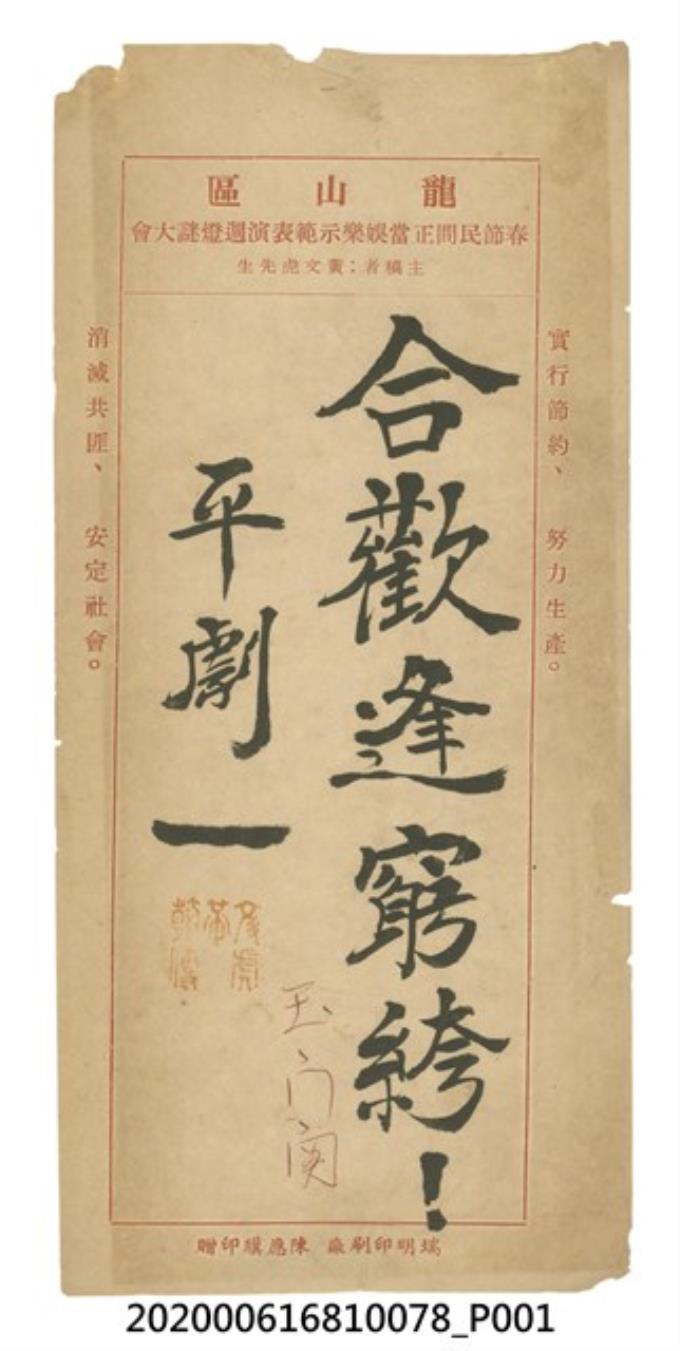 龍山區
春節民間正當娛樂示範表演週燈謎大會
主稿者；黃文虎先生
實行節約、努力生產。
合歡逢窮絝！
平劇一
玉門関
消滅共匪、安定社會。
瑞明印刷廠 陳應騏印贈
202000616810078_P001